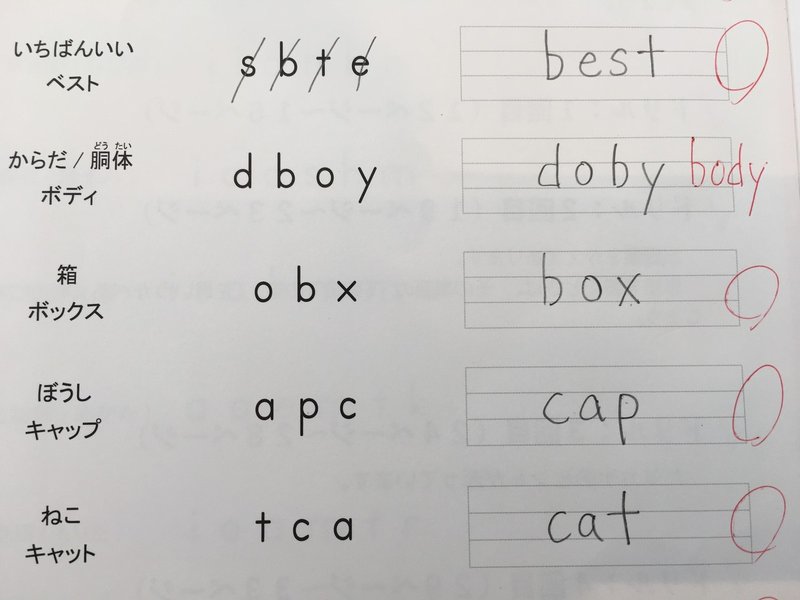 いちばんいい
ベスト
s b t e
best
からだ / 胴体
どう たい
ボディ
d b o y
doby body
箱
ボックス
o b x
box
ぼうし
キャップ
a p c
cap
ねこ
キャット
t c a
cat